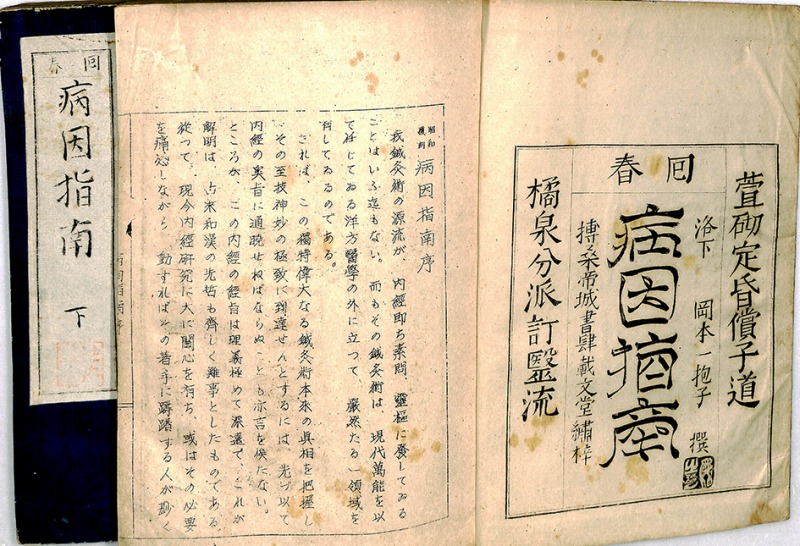 回春
病因指南
下
萱砌定昏償子道
洛下 岡本一抱子 撰
回春
病因指南
搏桑帝城書肆載文堂繡梓
橘泉分派訂醫流
昭和
復刻
病因指南序
我鍼灸術の源流が、内經即ち素問、靈樞に發してゐる
ことはいふ迄もない。而もその鍼灸術は、現代萬能を以
て任じてゐる洋方醫學の外に立つて、嚴然たる一領域を
有してゐるのである。
されば、この獨特偉大なる鍼灸術本來の真相を把握し
その至技神妙の極致に到達せんとするには、先づ以て
内經の奥旨に通曉せねばならぬことも亦言を俟たない。
ところが、この内經の經旨は理義極めて深遠で、これが
解明は、古来和漢の先哲も齊しく難事としたものである。
從つて、現今内經研究に大に関心を有ち、或はその必要
を痛感しながら、動すればその着手に躊躇する人が尠く